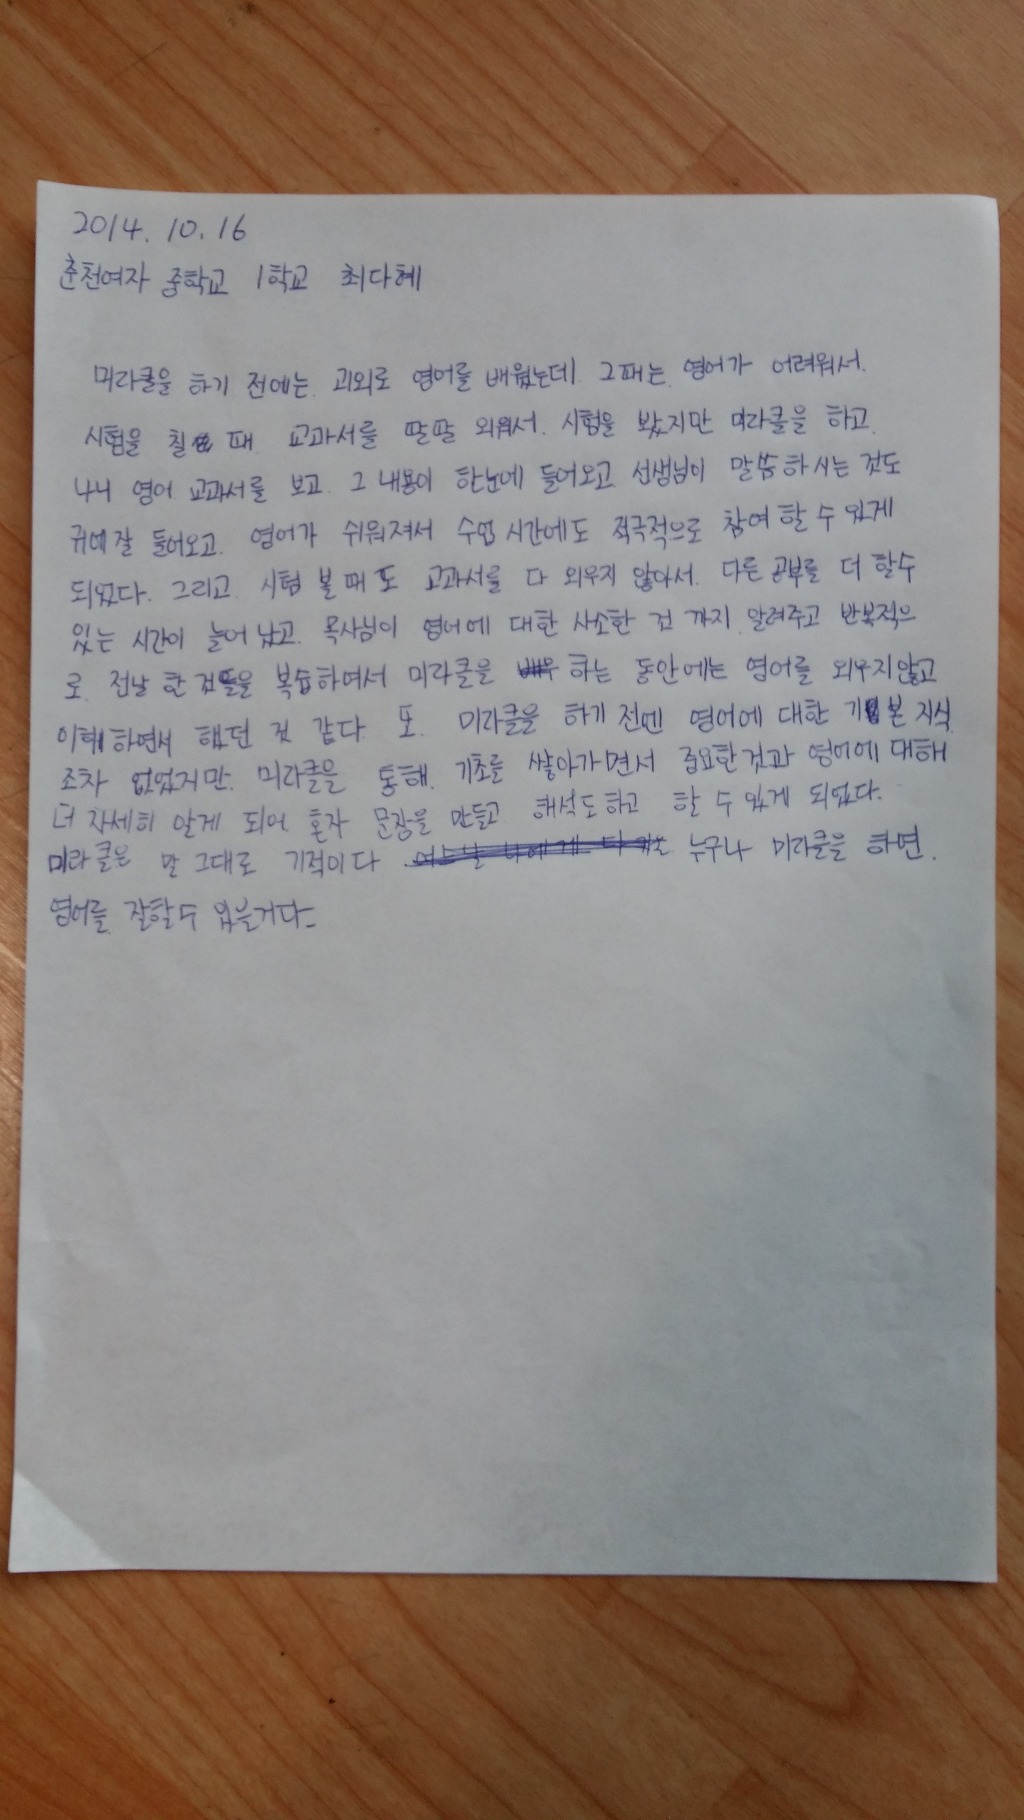 2014. 10. 16
춘천여자 중학교 1학교 최다혜
미라클을 하기 전에는 괴외로 영어를 배웠는데 그때는 영어가 어려워서
시험을 칠 때 교과서를 딸딸 외워서 시험을 봤지만 미라클을 하고
나니 영어 교과서를 보고 그 내용이 한눈에 들어오고 선생님이 말씀하시는 것도
귀에 잘 들어오고 영어가 쉬워져서 수업시간에도 적극적으로 참여할 수 있게
되었다. 그리고 시험 볼 때도 교과서를 다 외우지 않아서 다른 공부를 더 할수
있는 시간이 늘어 났고 목사님이 영어에 대한 사소한 것 까지 알려주고 반복적으
로 전날 한 것들을 복습하여서 미라클을 하는 동안에는 영어를 외우지않고
이해하면서 했던 것 같다 또 미라클을 하기 전엔 영어에 대한 기본 지식
조차 없었지만 미라클을 통해 기초를 쌓아가면서 중요한것과 영어에 대해
더 자세히 알게 되어 혼자 문장을 만들고 해석도하고 할 수 있게 되었다.
미라클은 말 그대로 기적이다 누구나 미라클을 하면
영어를 잘할수 있을거다